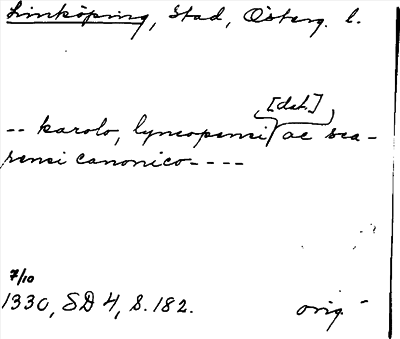 Linköping, Stad, Österg. l.
[dat.]
-- karolo, lyncopensi ac sca-
rensi canonico----
7/10
1330, SD 4, S. 182.
orig.